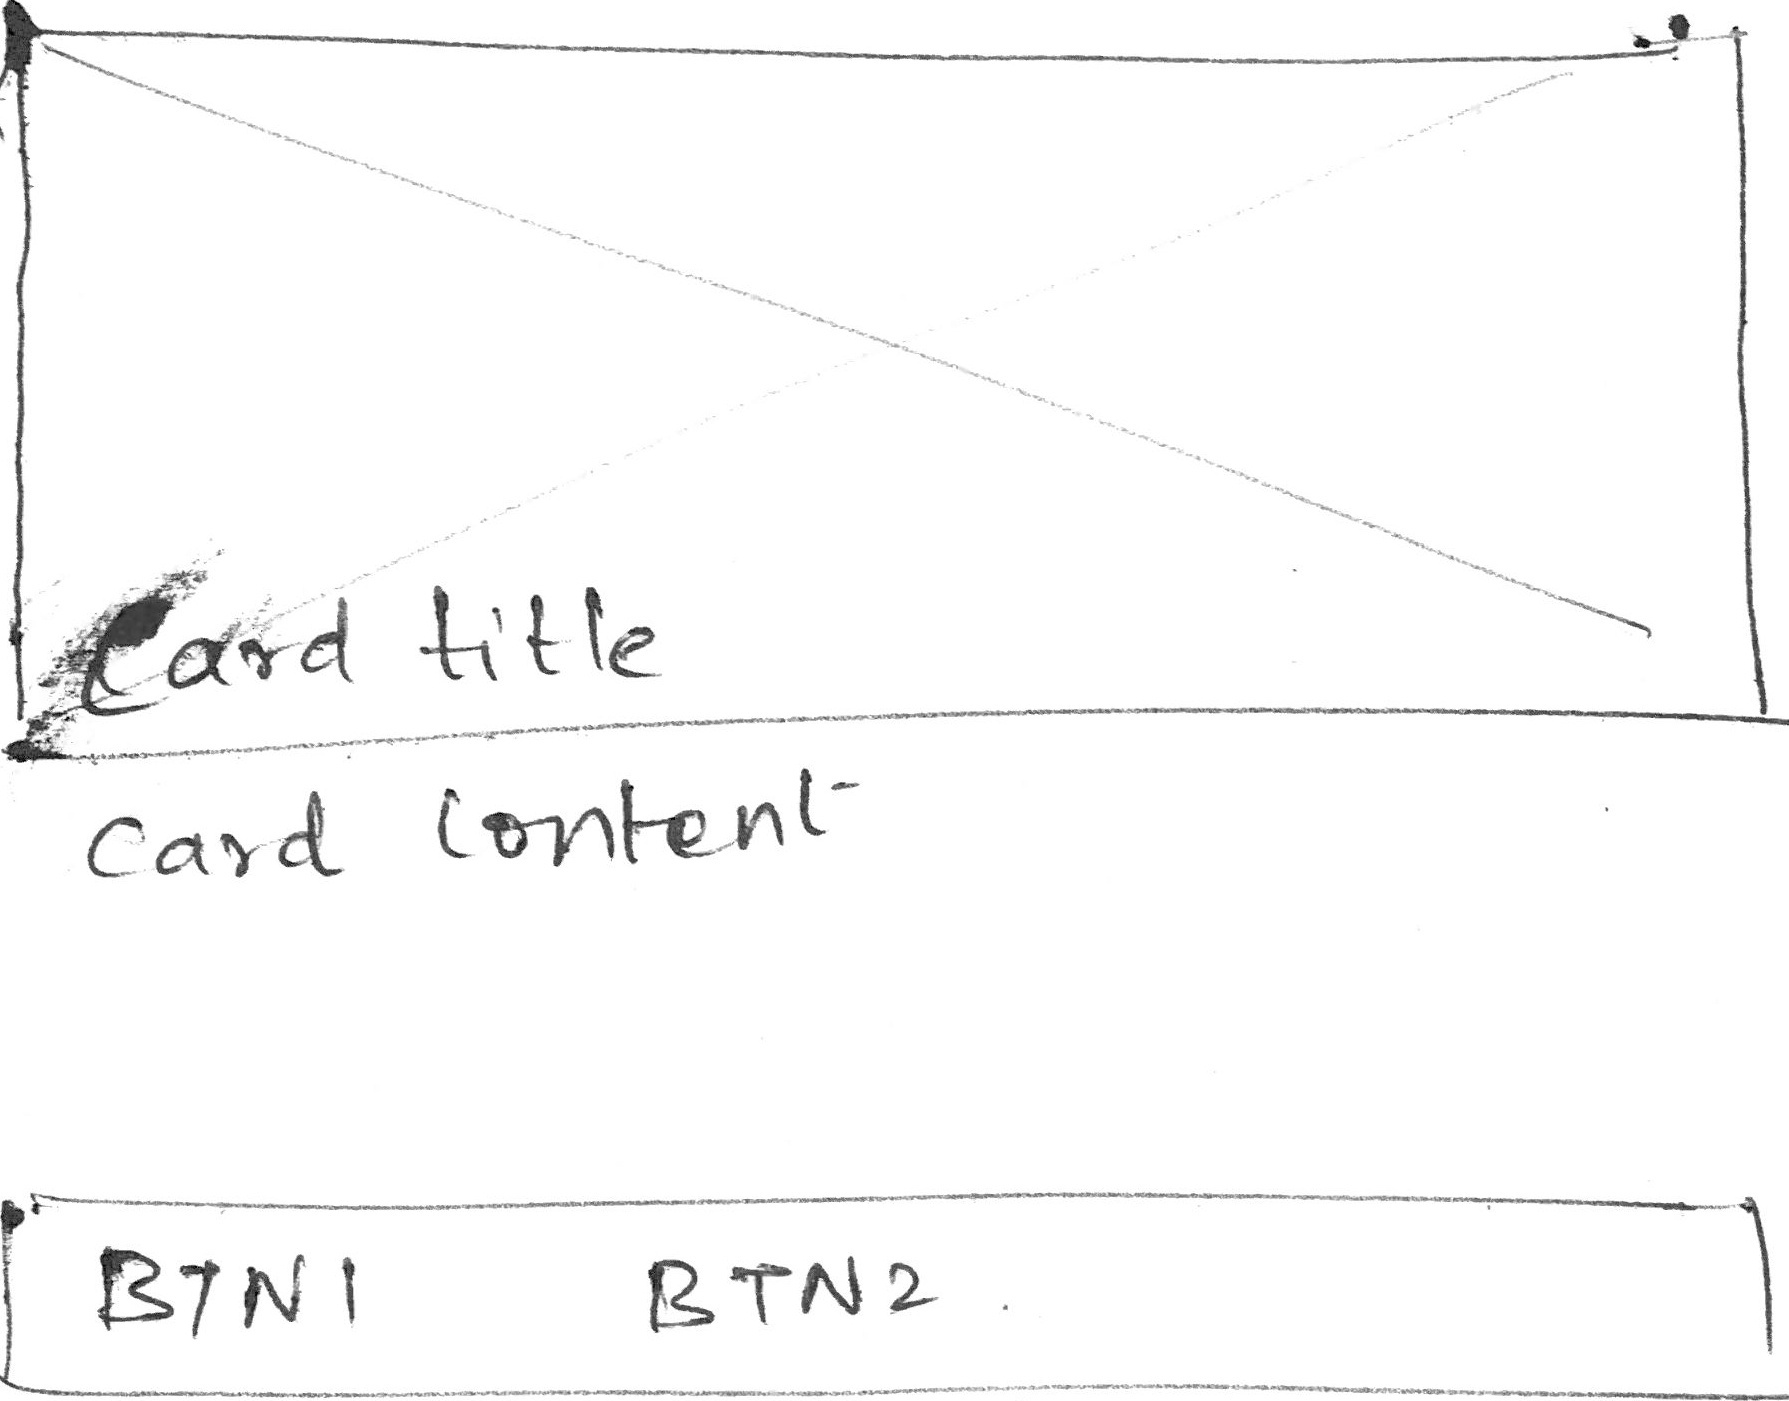 Card title
Card content
BTN1 BTN2.